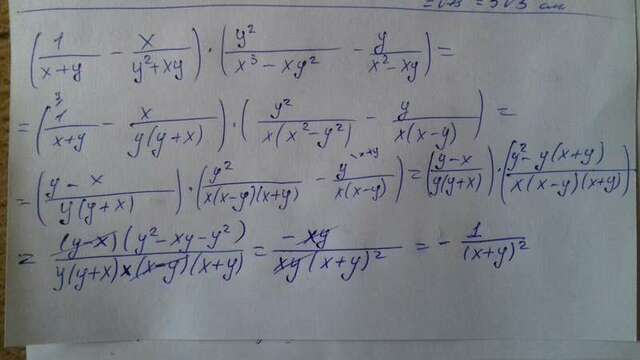 = 0B = 5√3 см
(1/(x+y) - x/(y²+xy)) · (y²/(x³-xy²) - y/(x²-xy)) =
= (1/(x+y) - x/(y(y+x))) · (y²/(x(x²-y²)) - y/(x(x-y))) =
= ((y-x)/(y(y+x))) · (y²/(x(x-y)(x+y)) - y/(x(x-y))) = ((y-x)/(y(y+x))) · ((y²-y(x+y))/(x(x-y)(x+y)))
= ((y-x)(y²-xy-y²))/(y(y+x)x(x-y)(x+y)) = -xy/(xy(x+y)²) = -1/(x+y)²